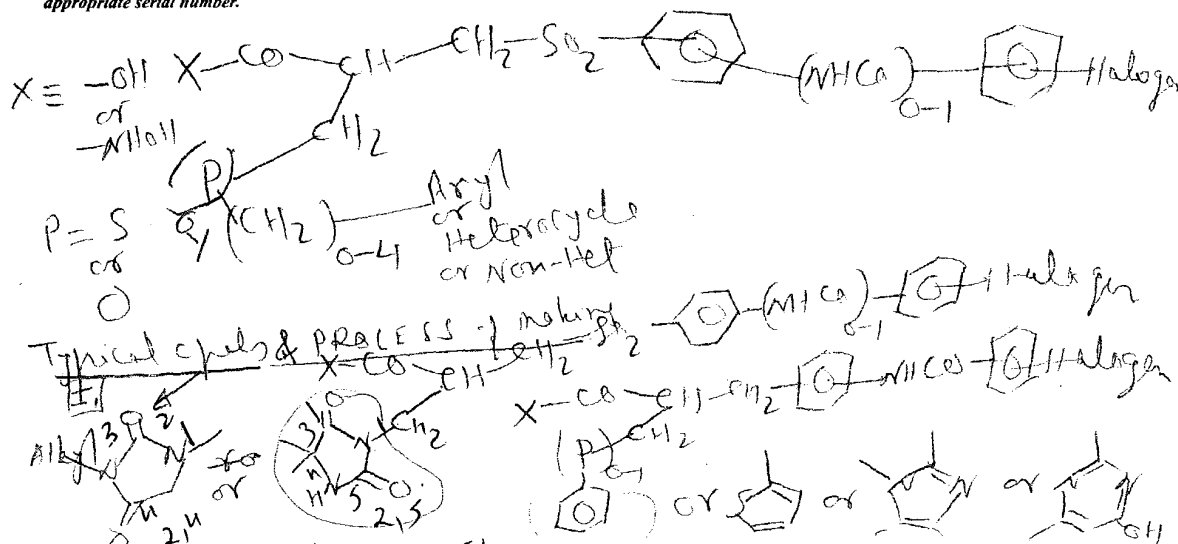 appropriate serial number.
X ≡ -OH or -NHOH
X-CO-CH-CH2-SO2-(NHCO)0-1-Halogen
CH2
(P)
P = S or O
(CH2)0-4 Aryl or Heterocycle or Non-Het
Typical cpds & PROCESS of making
X-CO-CH-CH2-SO2-(NHCO)0-1-Halogen
CH2
I.
X-CO-CH-CH2-NHCO-Halogen
(P)0-1 CH2
Alkyl 3 O 2 N N 4 O 2,4
or
3 O N 4 HN 5 O 2,5
or S or N N or N N OH